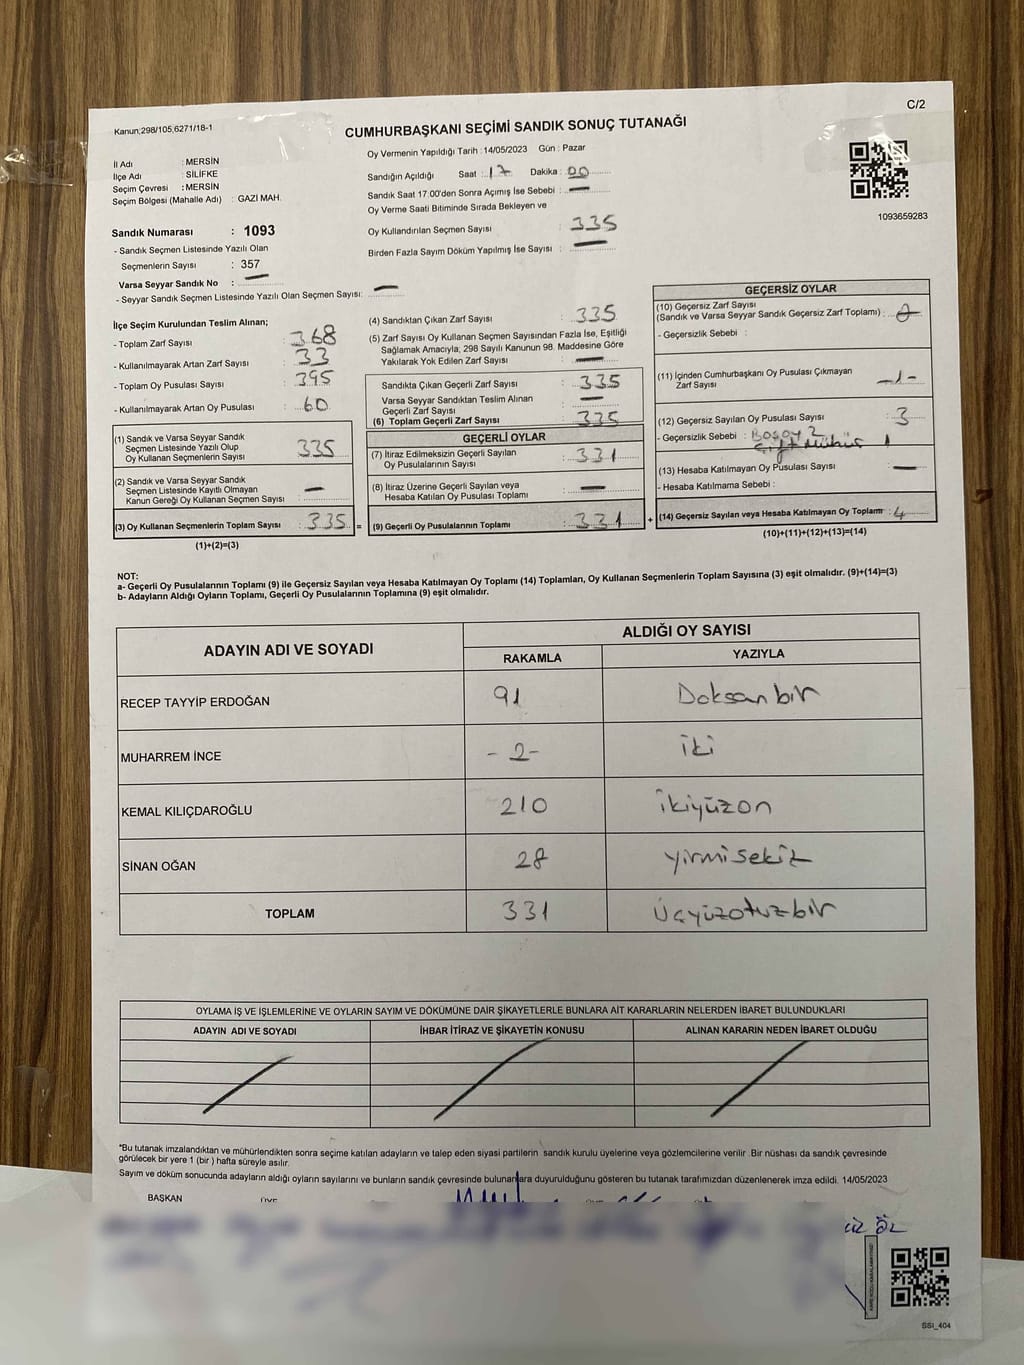 C/2
Kanun;298/105,6271/18-1
CUMHURBAŞKANI SEÇİMİ SANDIK SONUÇ TUTANAĞI
İl Adı : MERSİN
İlçe Adı : SİLİFKE
Seçim Çevresi : MERSİN
Seçim Bölgesi (Mahalle Adı) : GAZİ MAH.
Sandık Numarası : 1093
- Sandık Seçmen Listesinde Yazılı Olan
Seçmenlerin Sayısı : 357
Varsa Seyyar Sandık No : —
- Seyyar Sandık Seçmen Listesinde Yazılı Olan Seçmen Sayısı: —
Oy Vermenin Yapıldığı Tarih : 14/05/2023 Gün : Pazar
Sandığın Açıldığı Saat : 17 Dakika : 00
Sandık Saat 17.00'den Sonra Açımış İse Sebebi : —
Oy Verme Saati Bitiminde Sırada Bekleyen ve
Oy Kullandırılan Seçmen Sayısı : 335
Birden Fazla Sayım Döküm Yapılmış İse Sayısı : —
1093659283
İlçe Seçim Kurulundan Teslim Alınan;
- Toplam Zarf Sayısı : 368
- Kullanılmayarak Artan Zarf Sayısı : 33
- Toplam Oy Pusulası Sayısı : 395
- Kullanılmayarak Artan Oy Pusulası : 60
(1) Sandık ve Varsa Seyyar Sandık
Seçmen Listesinde Yazılı Olup
Oy Kullanan Seçmenlerin Sayısı : 335
(2) Sandık ve Varsa Seyyar Sandık
Seçmen Listesinde Kayıtlı Olmayan
Kanun Gereği Oy Kullanan Seçmen Sayısı : —
(3) Oy Kullanan Seçmenlerin Toplam Sayısı : 335 =
(1)+(2)=(3)
(4) Sandıktan Çıkan Zarf Sayısı : 335
(5) Zarf Sayısı Oy Kullanan Seçmen Sayısından Fazla İse, Eşitliği
Sağlamak Amacıyla; 298 Sayılı Kanunun 98. Maddesine Göre
Yakılarak Yok Edilen Zarf Sayısı : —
Sandıkta Çıkan Geçerli Zarf Sayısı : 335
Varsa Seyyar Sandıktan Teslim Alınan
Geçerli Zarf Sayısı : —
(6) Toplam Geçerli Zarf Sayısı : 335
GEÇERLİ OYLAR
(7) İtiraz Edilmeksizin Geçerli Sayılan
Oy Pusulalarının Sayısı : 331
(8) İtiraz Üzerine Geçerli Sayılan veya
Hesaba Katılan Oy Pusulası Toplamı : —
(9) Geçerli Oy Pusulalarının Toplamı : 331 +
GEÇERSİZ OYLAR
(10) Geçersiz Zarf Sayısı
(Sandık ve Varsa Seyyar Sandık Geçersiz Zarf Toplamı) :
- Geçersizlik Sebebi :
(11) İçinden Cumhurbaşkanı Oy Pusulası Çıkmayan
Zarf Sayısı : -1-
(12) Geçersiz Sayılan Oy Pusulası Sayısı : 3
- Geçersizlik Sebebi : Boş oy 2
Çift Mühür 1
(13) Hesaba Katılmayan Oy Pusulası Sayısı : —
- Hesaba Katılmama Sebebi :
(14) Geçersiz Sayılan veya Hesaba Katılmayan Oy Toplamı : 4
(10)+(11)+(12)+(13)=(14)
NOT:
a- Geçerli Oy Pusulalarının Toplamı (9) ile Geçersiz Sayılan veya Hesaba Katılmayan Oy Toplamı (14) Toplamları, Oy Kullanan Seçmenlerin Toplam Sayısına (3) eşit olmalıdır. (9)+(14)=(3)
b- Adayların Aldığı Oyların Toplamı, Geçerli Oy Pusulalarının Toplamına (9) eşit olmalıdır.
ADAYIN ADI VE SOYADI
ALDIĞI OY SAYISI
RAKAMLA YAZIYLA
RECEP TAYYİP ERDOĞAN 91 Doksan bir
MUHARREM İNCE -2- iki
KEMAL KILIÇDAROĞLU 210 ikiyüzon
SİNAN OĞAN 28 yirmisekiz
TOPLAM 331 Üçyüzotuzbir
OYLAMA İŞ VE İŞLEMLERİNE VE OYLARIN SAYIM VE DÖKÜMÜNE DAİR ŞİKAYETLERLE BUNLARA AİT KARARLARIN NELERDEN İBARET BULUNDUKLARI
ADAYIN ADI VE SOYADI İHBAR İTİRAZ VE ŞİKAYETİN KONUSU ALINAN KARARIN NEDEN İBARET OLDUĞU
*Bu tutanak imzalandıktan ve mühürlendikten sonra seçime katılan adayların ve talep eden siyasi partilerin sandık kurulu üyelerine veya gözlemcilerine verilir .Bir nüshası da sandık çevresinde
görülecek bir yere 1 (bir ) hafta süreyle asılır.
Sayım ve döküm sonucunda adayların aldığı oyların sayılarını ve bunların sandık çevresinde bulunanlara duyurulduğunu gösteren bu tutanak tarafımızdan düzenlenerek imza edildi. 14/05/2023
BAŞKAN
SSI_404